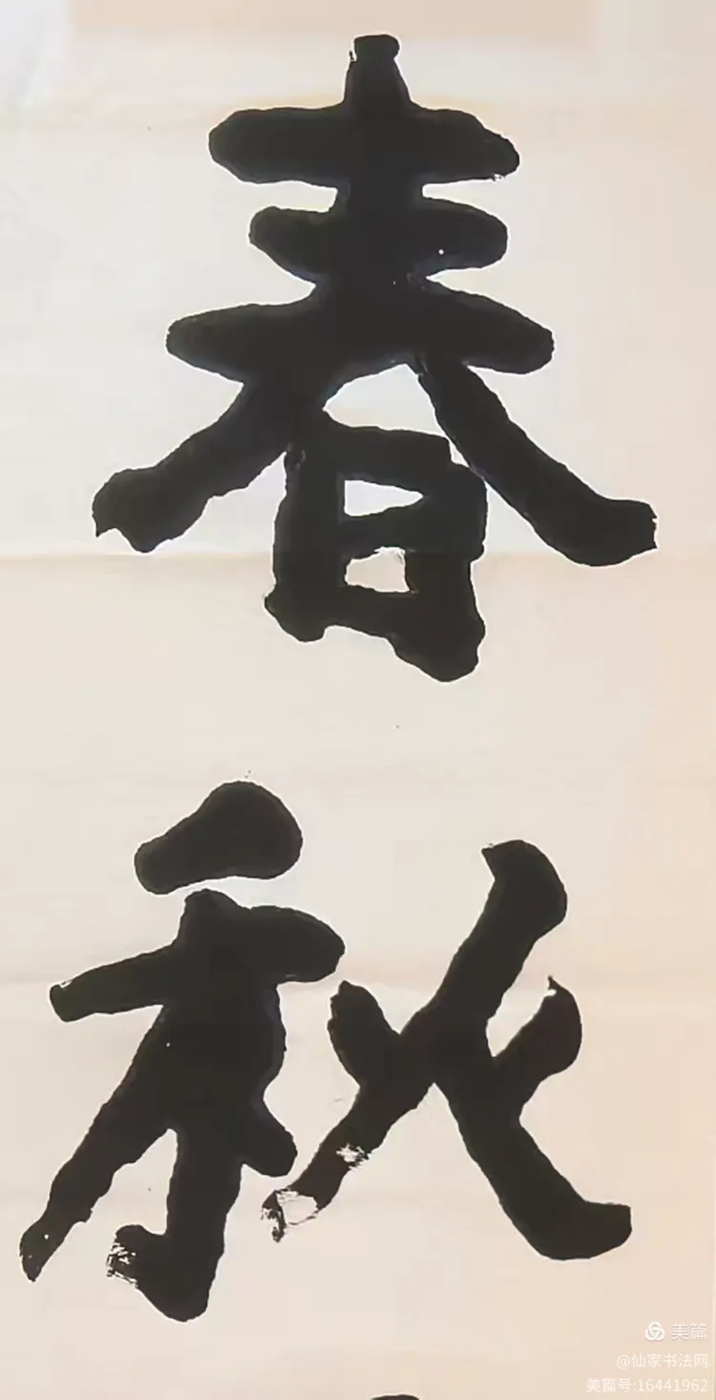 春秋
美篇
@仙家书法网
美篇号:16441962